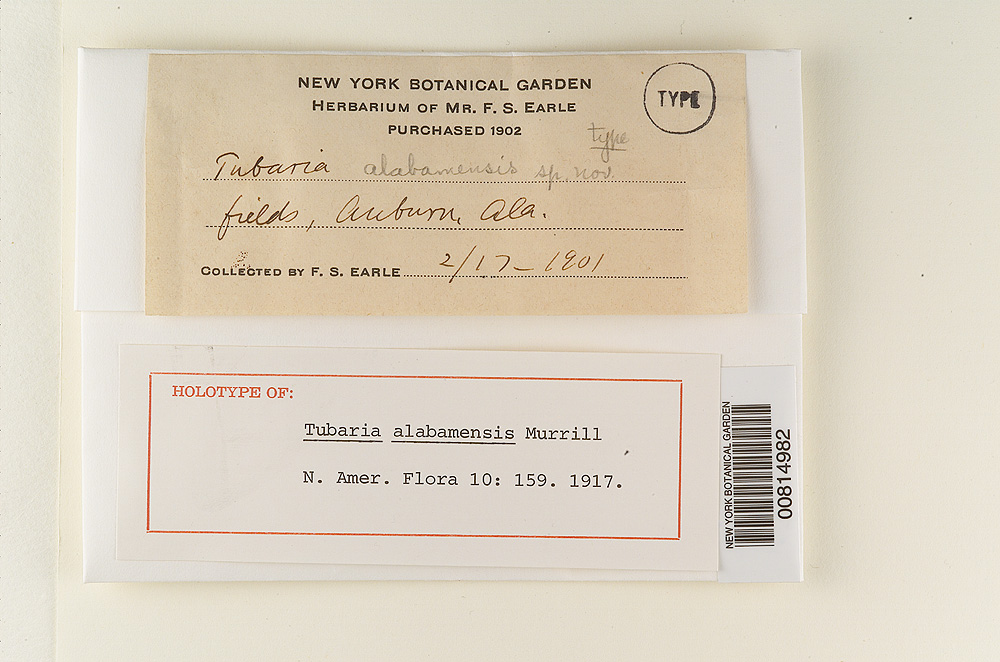 NEW YORK BOTANICAL GARDEN
HERBARIUM OF MR. F. S. EARLE
PURCHASED 1902
TYPE
type
Tubaria alabamensis sp. nov.
fields, Auburn, Ala.
COLLECTED BY F. S. EARLE 2/17-1901
HOLOTYPE OF:
Tubaria alabamensis Murrill
N. Amer. Flora 10: 159. 1917.
NEW YORK BOTANICAL GARDEN
00814982